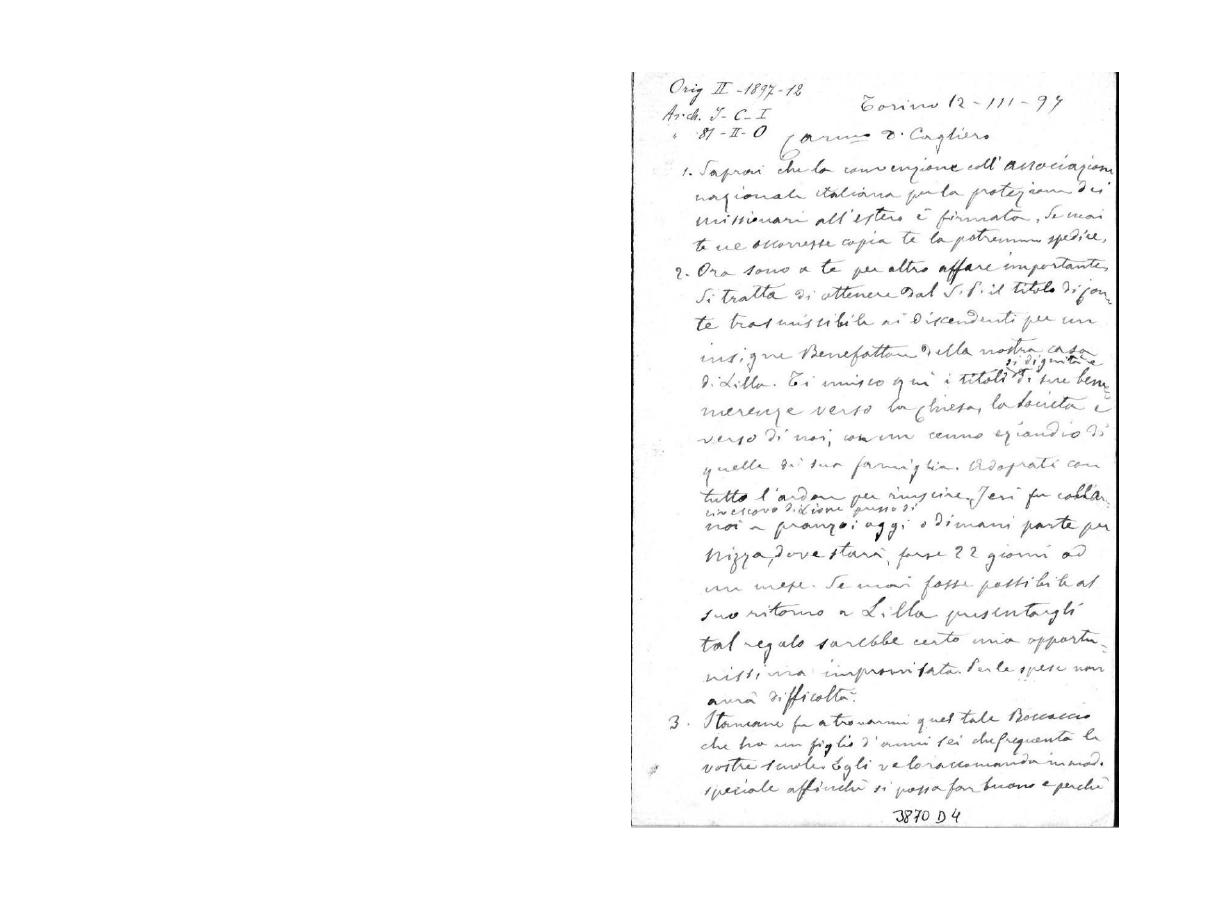 Orig II - 1897-12
Arch. I - C - I
" 81 - II - O
Torino 12 - III - 97
Carmo D. Cagliero
1. Saprai che la convenzione coll'associazione
nazionale italiana per la protezione dei
missionari all'estero è firmata. Se mai
te ne occorresse copia te la potremmo spedire.
2. Ora sono a te per altro affare importante,
Si tratta di ottenere dal S. P. il titolo di con-
te trasmissibile ai discendenti per un
insigne Benefattore della nostra casa
di Lilla. Ti unisco qui i titoli di sue bene-
si dignitate
merenze verso la Chiesa, la Società e
verso di noi, con un cenno eziandio di
quelle di sua famiglia. Adoprati con
tutto l'ardore per riuscire. Jeri fu coll'Ar-
civescovo di Lione presso di
noi a pranzo: oggi o dimani parte per
Nizza, dove starà, forse 22 giorni ad
un mese. Se mai fosse possibile al
suo ritorno a Lilla presentargli
tal regalo sarebbe certo una opportu-
nissima improvisata. Per le spese non
avrà difficoltà.
3. Stamane fu a trovarmi quel tale Boccaccio
che ha un figlio d'anni sei che frequenta le
vostre scuole. Egli ve lo raccomanda in mod.
speciale affinchè si possa far buono e perchè
3870 D 4